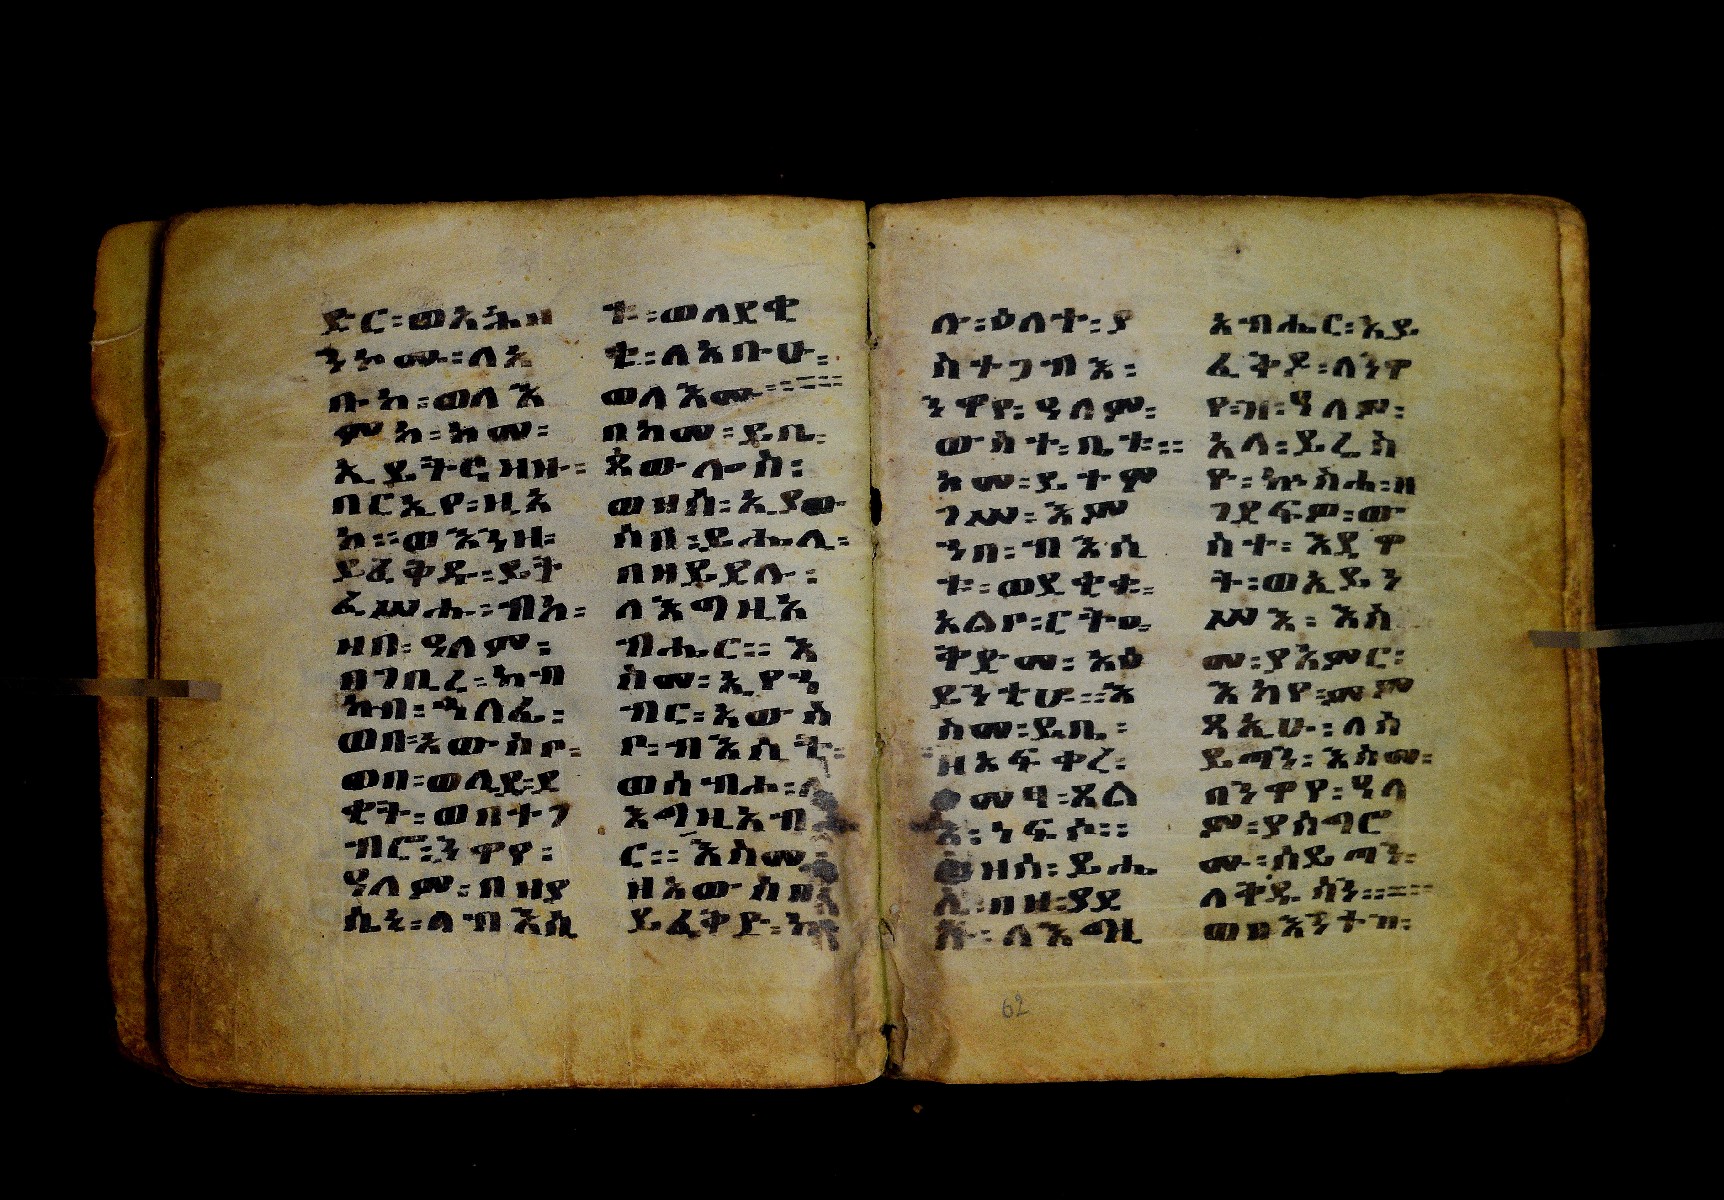 ድር፡ወአሕዘ
ንኮሙ፡ለአ
ቡከ፡ወለእ
ምከ፡ከመ፡
ኢይትርዘዙ፡
በርኢየ፡ዚአ
ከ፡፡ወእንዘ፡
ይፈቅዱ፡ይት
ፈሥሑ፡ብከ፡
ዘበ፡ዓለም፡
በገቢረ፡ከብ
ካብ፡ኀለፈ፡
ወበ፡አውስቦ፡
ወበ፡ወሊደ፡ደ
ቂት፡ወበተገ
ብሮ፡ንዋየ፡
ዓለም፡በዘያ
ሴኒ፡ለብእሲ
ት፡ወለደቂ
ቂ፡ለአቡሁ፡
ወለእሙ፡፡፡፡
በከመ፡ይቤ፡
ጳውሎስ፡
ወዘሰ፡ኢያው
ሰበ፡ይሔሊ፡
በዘይደሉ፡
ለእግዚአ
ብሔር፡፡እ
ስመ፡ኢየኀ
ብር፡አውስ
ቦ፡ብእሲት፡
ወሰብሐ፡ለ
እግዚአብ
ር፡፡እስመ፡
ዘአውሰበ
ይፈቅድ፡ን
ሉ፡ዕለተ፡ያ
ስተጋብእ፡
ንዋየ፡ዓለም፡
ውስተ፡ቤቱ፡፡
ከመ፡ይተም
ገሥ፡እም
ኀበ፡ብእሲ
ቱ፡ወደቂቁ፡
አልቦ፡ርትዑ፡
ትድመ፡አዕ
ይንቲሆ፡፡እ
ስመ፡ይቤ፡
ዘአፍቀረ፡
ዐመፃ፡ጸል
አ፡ነፍሶ፡፡
ወዘሰ፡ይሔ
ሊ፡በዘ፡ያደ
ሉ፡ለእግዚ
አብሔር፡አይ
ፈትዶ፡ለንዋ
የ፡ዝ፡ዓለም፡
አላ፡ይሬስ
ዮ፡ኵስሐ፡ዘ
ገደፍም፡ው
ስተ፡እደዋ
ት፡ወኢይን
ሥእ፡እስ
መ፡ያአምር፡
እከየ፡መም
ጻኢሁ፡ለሰ
ይጣን፡እስመ፡
በንዋየ፡ዓለ
ም፡ያሰግሮ
ሙ፡ሰይጣን፡
ለቅዱሳን፡፡፡፡
ወበእንተዝ፡
62